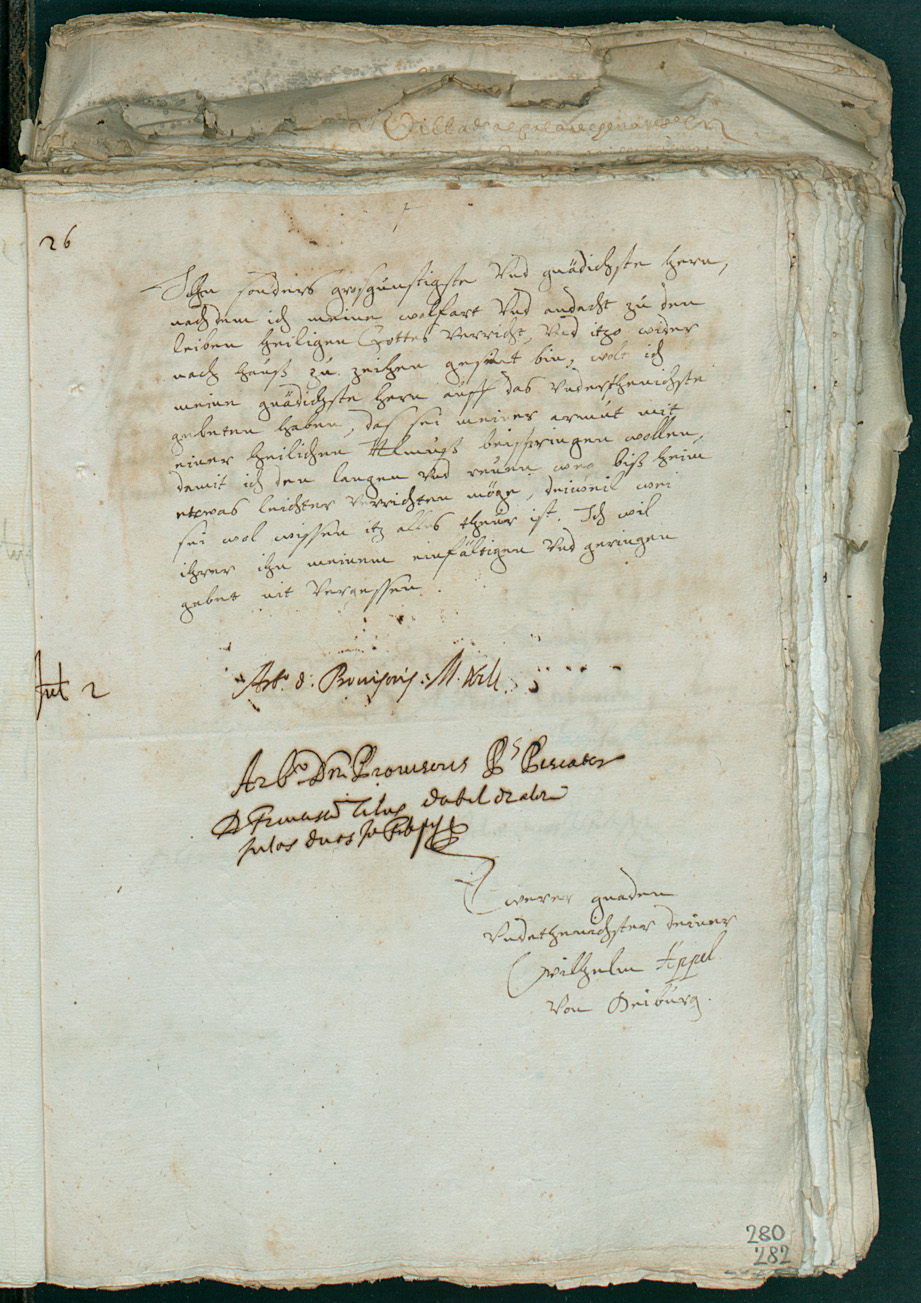 26
Ihn sonders grosgünstigste Vnd gnädichste Hern,
nach dem ich meine wolfart Vnd andacht zu den
leiben heiligen Gottes Verricht, Vnd itzo wider
nach hauß zu zeihen gesint bin, wolt ich
meine gnädichste Hern auff das Vnderthenichste
gebeten haben, das sei meiner armut mit
einer heilichen Almuß beispringen wollen,
damit ich den langen Vnd reuen weg biß heim
etwas leichter Verrichten möge, deiweil wei
sei wol wissen itz alles theür ist. Ich wil
ihrer ihn meinem einfältigen Vnd geringen
gebet nit Vergessen.
Jul 2
Arb. d. Provisoris
Arb. Dni Provisoris Piscator
D. Franciscus dabit oratori
solos duos
Ewerer gnaden
Vndethenichster deiner
Wilhelm Appel
Von Deiburg.
280
282